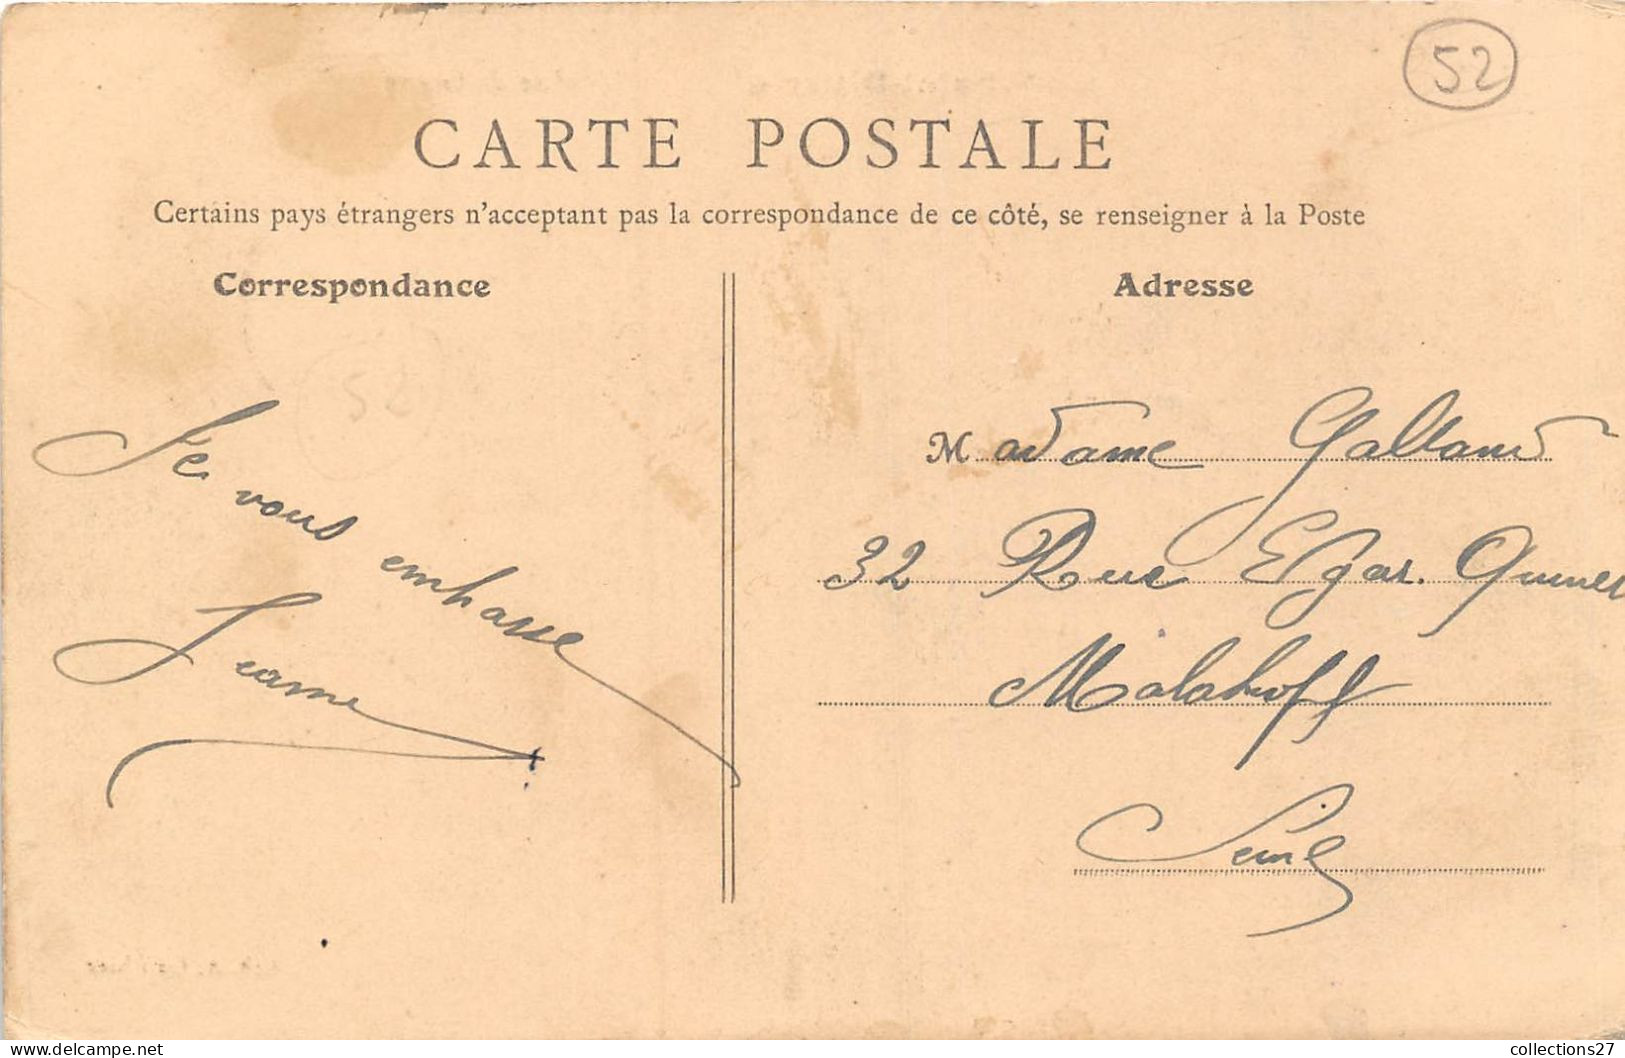 52
CARTE POSTALE
Certains pays étrangers n'acceptant pas la correspondance de ce côté, se renseigner à la Poste
Correspondance
Je vous embrasse
Jeanne
Adresse
Madame Galland
32 Rue Edgar. Quinet
Malakoff
Seine
collections27